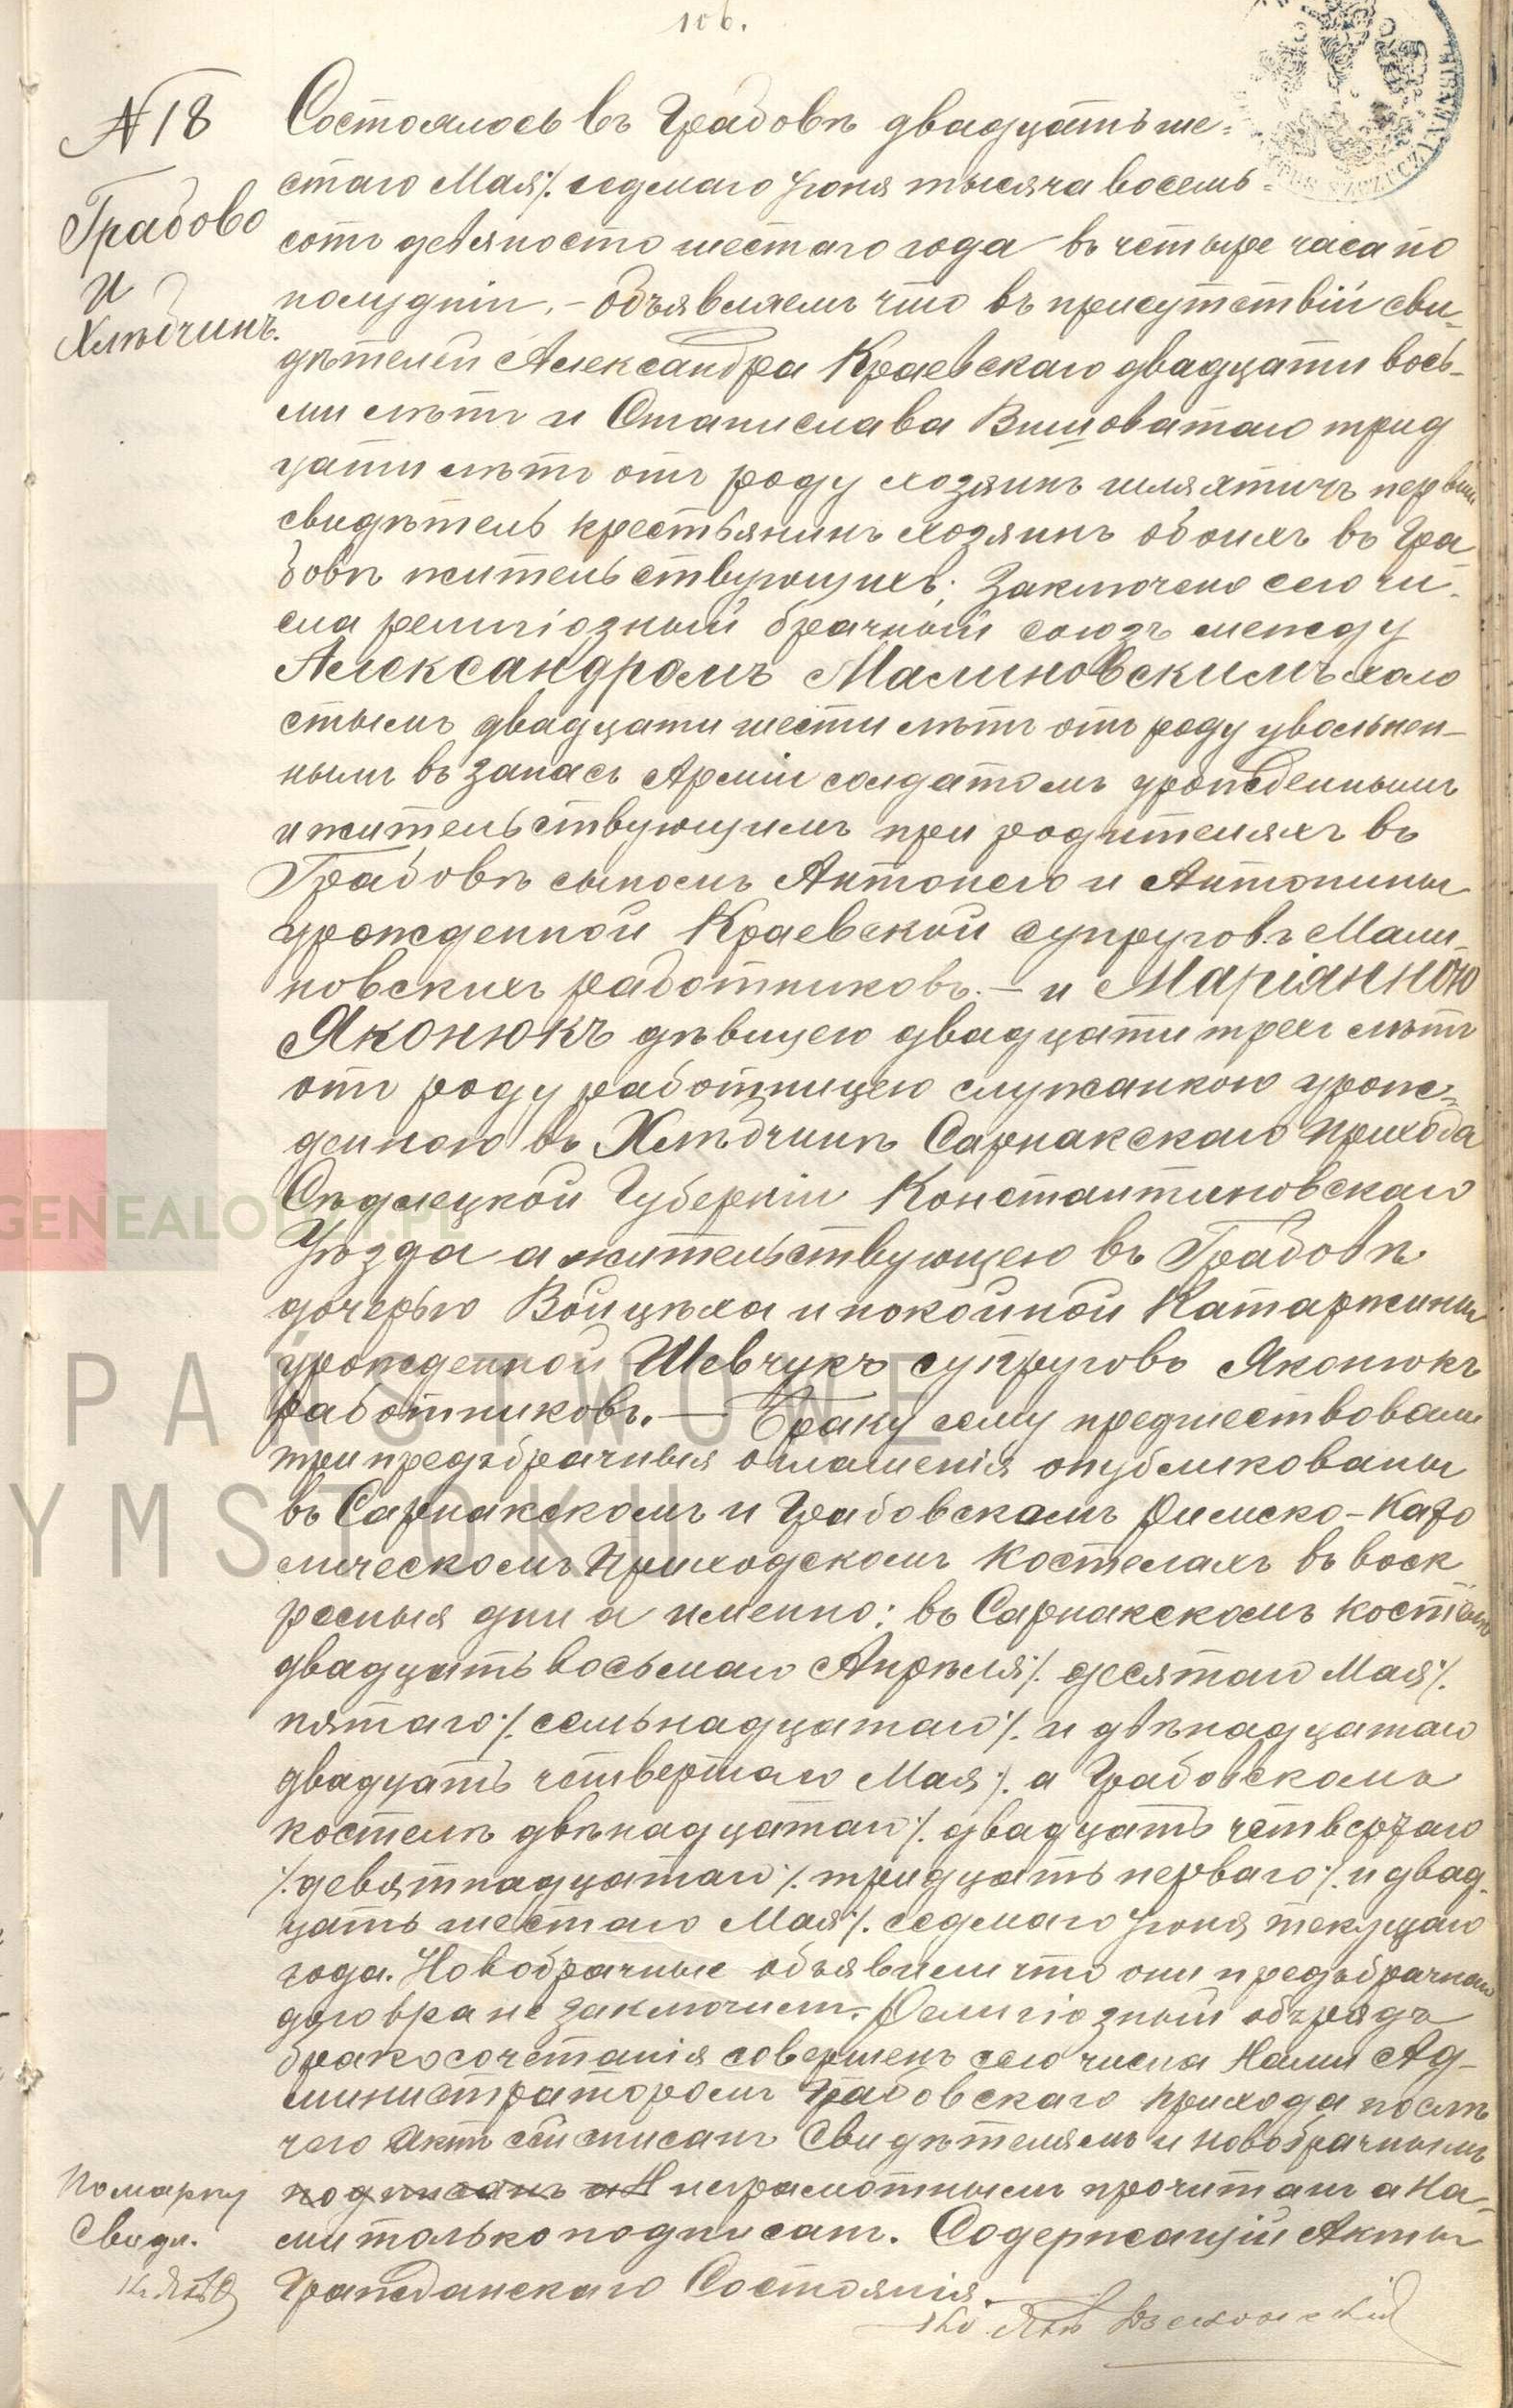 106.
№18
Грабово
и
Хлѣбчинъ.
Состоялось въ Грабовѣ двадцать ше-
стаго Мая ./. седмаго Іюня тысяча восемь-
сотъ девяносто шестаго года въ четыре часа по
полудніи. – Объявляемъ что въ присутствіи сви-
дѣтелей Александра Краевскаго двадцати вось-
ми лѣтъ и Станислава Вишоватаго трид
цати лѣтъ отъ роду хозяинъ шляхтичъ первый
свидѣтель крестьянинъ хозяинъ обоихъ въ Гра-
бовѣ жительствующихъ; Заключено сего чи-
сла религіозный брачный союзъ между
Александромъ Малиновскимъ холо
стымъ двадцати шести лѣтъ отъ роду увольнен-
нымъ въ запасъ Арміи солдатомъ урожденнымъ
и жительствующимъ при родителяхъ въ
Грабовѣ сыномъ Антонего и Антонины
урожденной Краевской супруговъ Мали-
новскихъ работниковъ. – и Маріанною
Яконюкъ дѣвицею двадцати трехъ лѣтъ
отъ роду работницею служанкою урож-
денною въ Хлѣбчинѣ Сарнакскаго прихода
Сѣдлецкой Губерніи Константиновскаго
Уѣзда а жительствующею въ Грабовѣ
дочерью Войцѣха и покойной Катаржины
урожденной Шевчукъ супруговъ Яконюкъ
работниковъ. — Браку сему предшествовали
три предъбрачныя оглашенія опубликованы
въ Сарнакскомъ и Грабовскомъ Римско-Като
лическомъ Приходскомъ Костелахъ въ воск
ресныя дни а именно: въ Сарнакскомъ костелѣ
двадцать восьмаго Апрѣля ./. десятаго Мая ./.
пятаго ./. семьнадцатаго ./. и двѣнадцатаго
двадцать четвертаго Мая ./. а Грабовскомъ
костелѣ двѣнадцатаго ./. двадцать четвертаго
./. девятнадцатаго ./. тридцать перваго ./. и двад-
цать шестаго Мая ./. седмаго Іюня текущаго
года. Новобрачные объявили что они предъбрачнаго
договра не заключили. Религіозный обърядъ
бракосочетанія совершенъ сего числа Нами Ад-
министраторомъ Грабовскаго прихода послѣ
чего Актъ сей списанъ Свидѣтелямъ и новобрачнымъ
подписанъ а Н неграмотнымъ прочитанъ а На-
ми только подписанъ. Содержащій Акты
Гражданскаго Состоянія.
Помарку
Свидѣ.
PAŃSTWOWE
YMSTOKU
GENEALODZY.PL